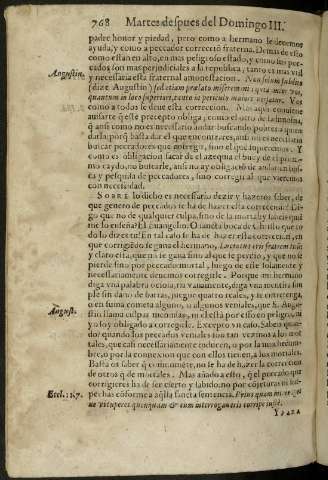 768 Martes despues del Domingo III.
padre honor y piedad, pero como a hermano le deuemos
ayuda, y como a peccador correctiõ fraterna. Demas de esso
como están en alto, en mas peligroso estado, y como sus pec-
cados son mas perjudiciales a la republica, tanto es mas vtil
Augustin.
y necessaria esta fraternal amonestacion. Non solum subditis
(dize Augustin) sed etiam prælato
quantum in loco superiori, tanto in periculo maiore
como a todos se deue esta correction. Mas aqui conuiene
auisarte q̃ este precepto obliga, como el otro de la limosna,
q̃ ansi como no es necessario andar buscando pobres a quien
darla; porq̃ basta dar al q̃ ante encontrares, ansi no es necessario
buscar peccadores que corregir, sino el que supieremos. Y
como es obligacion sacar de el azequia el buey de tu proxi-
mo caydo, no buscarle, ansi no ay obligaciõ de andar en bus-
ca y pesquisa de peccadores, sino corregir al que vieremos
con necessidad.
SOBRE lo dicho es necessario dezir y hazeros saber, de
que genero de peccados se ha de hazer esta correction. Di-
go que no de qualquier culpa, sino de la mortal
me lo enseña? El Euangelio. O sancta boca de Christo que to
do lo dixeste! En tal caso se ha de hazer esta correction, en
que corrigiẽdo se gana el hermano, Lucratus eris fratrem tuũ
y claro està, que no se gana sino al que se perdio, y que no se
pierde sino por peccado mortal, luego de este solamente y
necessariamente deuemos corregirle. Porque mi hermano
diga vna palabra ociosa, ria vanamente, diga vna mentira sim
ple sin daño de barras, juegue quatro reales, y se entretenga,
Augusti.
o en suma cometa alguno, o algunos veniales, que S. Augu-
stin llama culpas menudas, ni el està por esso en peligro, ni
yo soy obligado a corregirle. Excepto vn caso, Sabeis quan-
do? quando los peccados veniales son tan vezinos a los mor-
tales, que casi necessariamente inducen, o por la muchedum-
bre, o por la connexion que con ellos tienen, a los mortales.
Basta os saber q̃ comunmẽte, no se ha de hazer la correcion
de otros q̃ de mortales. Mas añado a esto, q̃ el peccado que
corrigieres ha de ser cierto y sabido, no por cõjeturas ni sos-
Eccl. 11. 7.
pechas cõforme a aq̃lla sancta sentencia. Prius quam interro-
ges ne vituperes quenquam & cum interrogaueris corripe iustè.